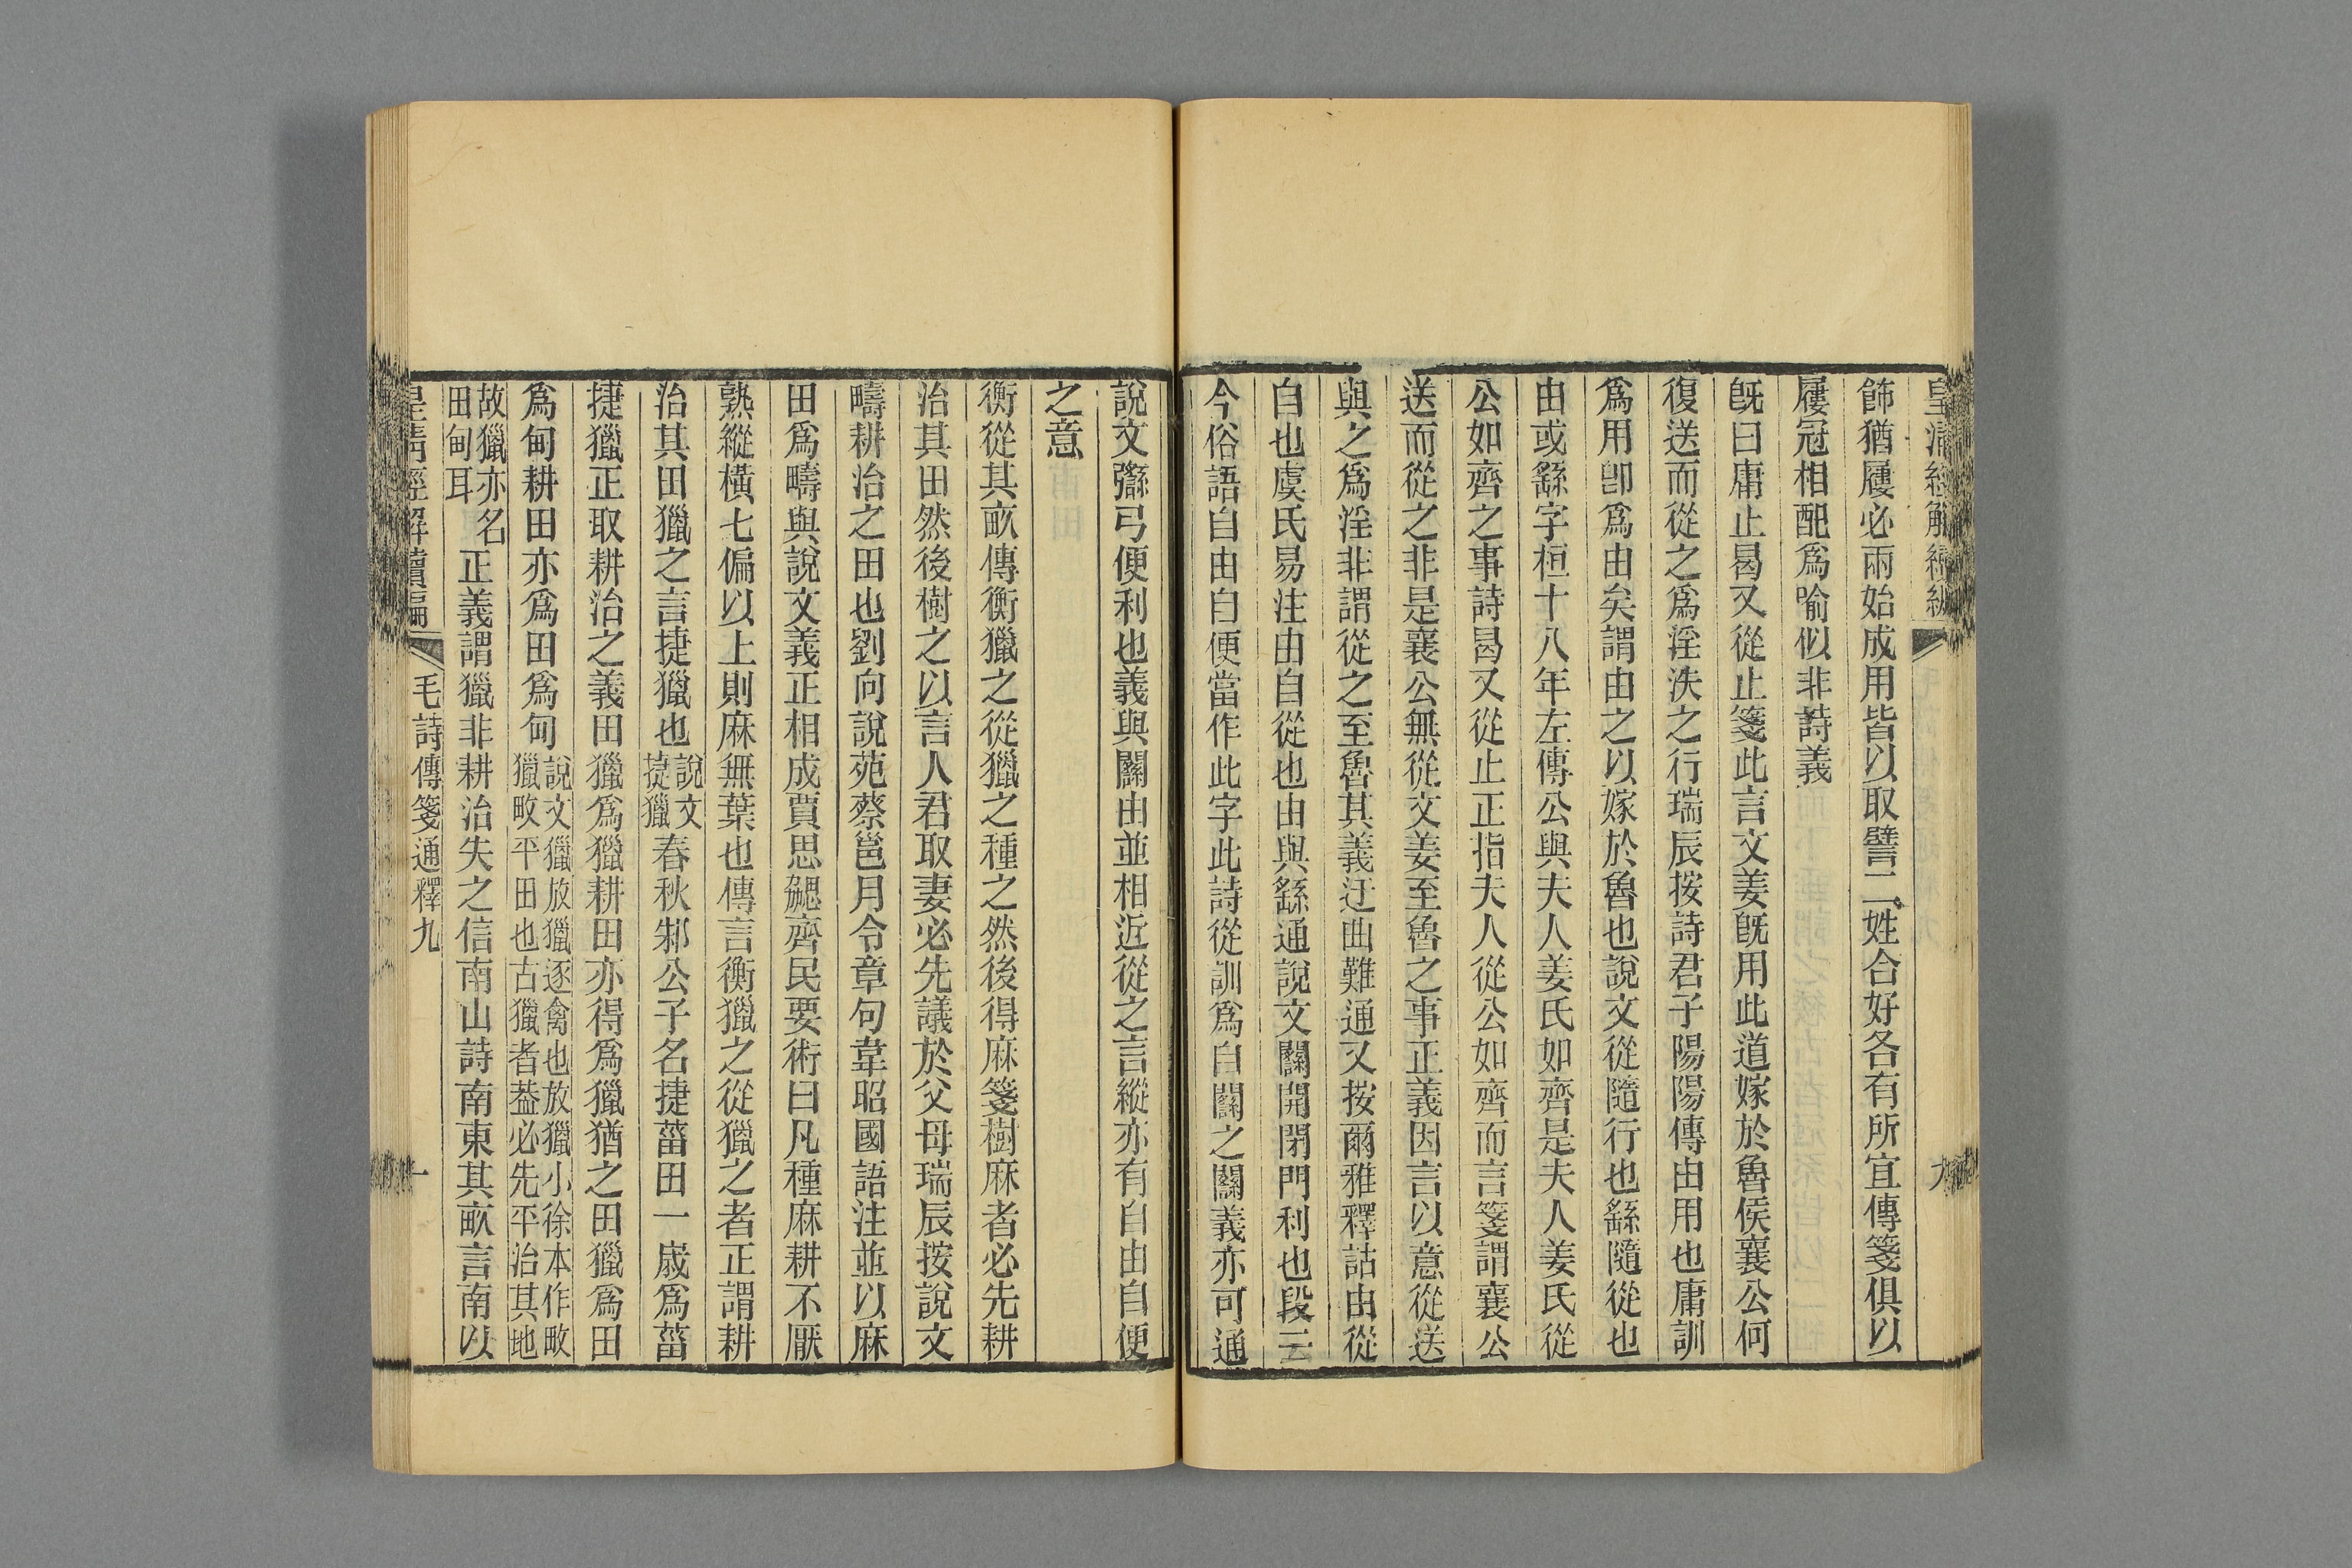 皇清經解續編
九
飾猶屨必兩始成用皆以取譬二姓合好各有所宜傳箋俱以
屨冠相配爲喻似非詩義
旣曰庸止曷又從止箋此言文姜旣用此道嫁於魯侯襄公何
復送而從之爲淫泆之行瑞辰按詩君子陽陽傳由用也庸訓
爲用卽爲由矣謂由之以嫁於魯也說文從隨行也繇隨從也
由或繇字桓十八年左傳公與夫人姜氏如齊是夫人姜氏從
公如齊之事詩曷又從止正指夫人從公如齊而言箋謂襄公
送而從之非是襄公無從文姜至魯之事正義因言以意從送
與之爲淫非謂從之至魯其義迂曲難通又按爾雅釋詁由從
自也虞氏易注由自從也由與繇通說文闗開閉門利也段云
今俗語自由自便當作此字此詩從訓爲自闗之闗義亦可通
說文㢞弓便利也義與闗由並相近從之言縱亦有自由自便
之意
衡從其畝傳衡獵之從獵之種之然後得麻箋樹麻者必先耕
治其田然後樹之以言人君取妻必先議於父母瑞辰按說文
疇耕治之田也劉向說苑蔡邕月令章句韋昭國語注並以麻
田爲疇與說文義正相成賈思勰齊民要術曰凡種麻耕不厭
熟縱橫七徧以上則麻無葉也傳言衡獵之從獵之者正謂耕
治其田獵之言捷獵也說文捷獵春秋邾公子名捷菑田一歲爲菑
捷獵正取耕治之義田獵爲獵耕田亦得爲獵猶之田獵爲田
爲甸耕田亦爲田爲甸說文獵放獵逐禽也放獵小徐本作畋獵畋平田也古獵者葢必先平治其地
故獵亦名田甸耳正義謂獵非耕治失之信南山詩南東其畝言南以
皇清經解續編
毛詩傳箋通釋九
一